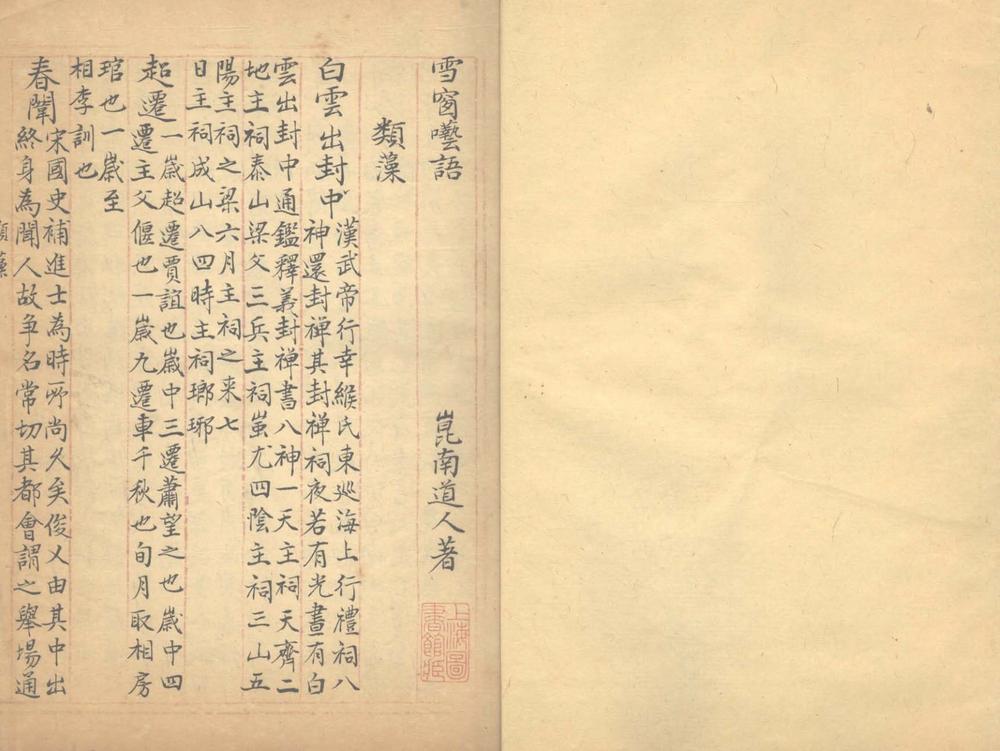 雪窗囈語 崑南道人著
上海圖
書館藏
類藻
白雲出封中
漢武帝行幸緱氏東巡海上行禮祠八
神還封禅其封禅祠夜若有光晝有白
雲出封中通鑑釋義封禅書八神一天主祠天齊二
地主祠泰山梁父三兵主祠蚩尤四陰主祠三山五
陽主祠之梁六月主祠之来七
日主祠成山八四時主祠瑯琊
超遷
一歲超遷賈誼也歲中三遷蕭望之也歲中四
遷主父偃也一歲九遷車千秋也旬月取相房
琯也一歲至
相李訓也
春闈
宋國史補進士為時所尚久矣俊乂由其中出
終身為聞人故争名常切其都會謂之舉場通
類藻